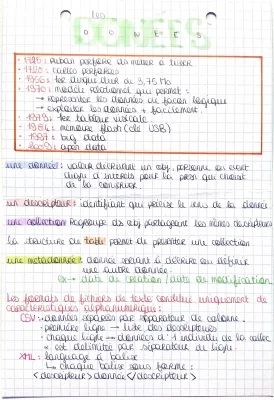 Les
DONNÉES
DONNEES
- 1725 : ruban perforé des métier à tisser
- 1728 : cartes perforées
- 1956 : 1er disque dur de 3,75 Mo
- 1970 : modèle relationnel qui permet :
→ représenter les données de façon logique
→ exploiter les données + facilement
- 1979 : 1er tableur visicalc
- 1984 : mémoire flash (clé USB)
- 1997 : big data
- 2009 : open data
une donnée : valeur décrivant un obj, personne ou event
digne d'intérêt pour la pers qui choisit
de la conserver.
un descripteur : identifiant qui précise le sens de la donnée
une collection regroupe des obj partageant les mêmes descripteurs
la structure de table permet de présenter une collection
une metadonnée : donnée servant à décrire ou définir
une autre donnée.
ex → date de création / date de modification
Les formats de fichiers de texte constitué uniquement de
caractéristiques alphanumérique :
CSV : données séparées par séparateur de colonne.
• première ligne → liste des descripteurs
• chaque ligne → données d'1 individu de la collec
• est délimité par séparateur de ligne.
XML : language à balise
↳ chaque balise sous forme :
<descripteur> donnée </descripteur>